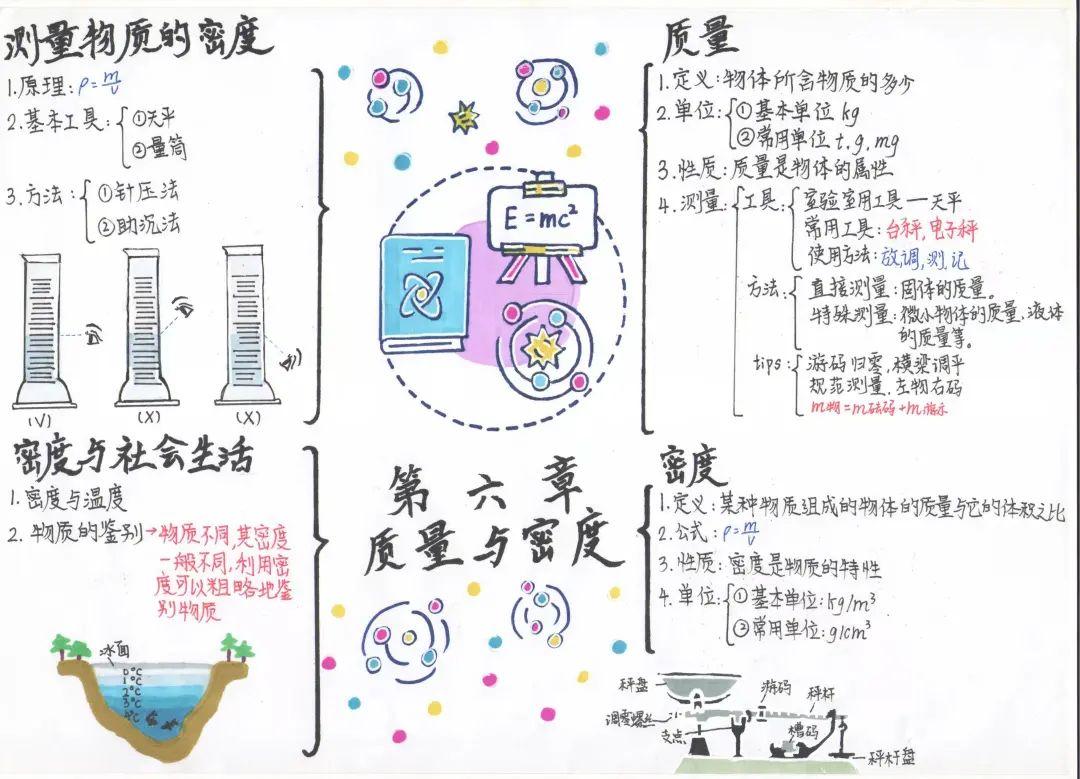 测量物质的密度
1.原理:ρ=m/v
2.基本工具:
①天平
②量筒
3.方法:
①针压法
②助沉法
(√)
(X)
(X)
密度与社会生活
1.密度与温度
2.物质的鉴别→物质不同,其密度
一般不同,利用密
度可以粗略地鉴
别物质
冰面
0℃
1℃
2℃
3℃
4℃
E=mc²
第六章
质量与密度
质量
1.定义:物体所含物质的多少
2.单位:①基本单位 kg
②常用单位 t.g.mg
3.性质:质量是物体的属性
4.测量:
工具:
实验室用工具—天平
常用工具:台秤,电子秤
使用方法:放,调,测,记
方法:
直接测量:固体的质量。
特殊测量:微小物体的质量,液体
的质量等。
tips:
游码归零,横梁调平
规范测量,左物右码
m物=m砝码+m游示
密度
1.定义:某种物质组成的物体的质量与它的体积之比
2.公式:ρ=m/v
3.性质:密度是物质的特性
4.单位:①基本单位:kg/m³
②常用单位:g/cm³
秤盘
游码
秤杆
调零螺丝
支点
槽码
秤杆盘